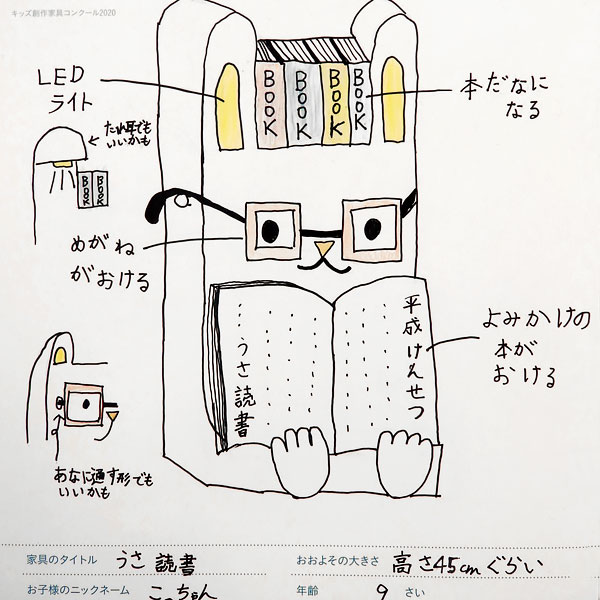 キッズ創作家具コンクール2020
LED
ライト
たれ耳でも
いいかも
BOOK
BOOK
BOOK
BOOK
BOOK
BOOK
本だなに
なる
めがね
がおける
うさ読書
平成けんせつ
よみかけの
本が
おける
あなに通す形でも
いいかも
家具のタイトル うさ読書
おおよその大きさ 高さ45cmぐらい
お子様のニックネーム こっちゃん
年齢 9 さい